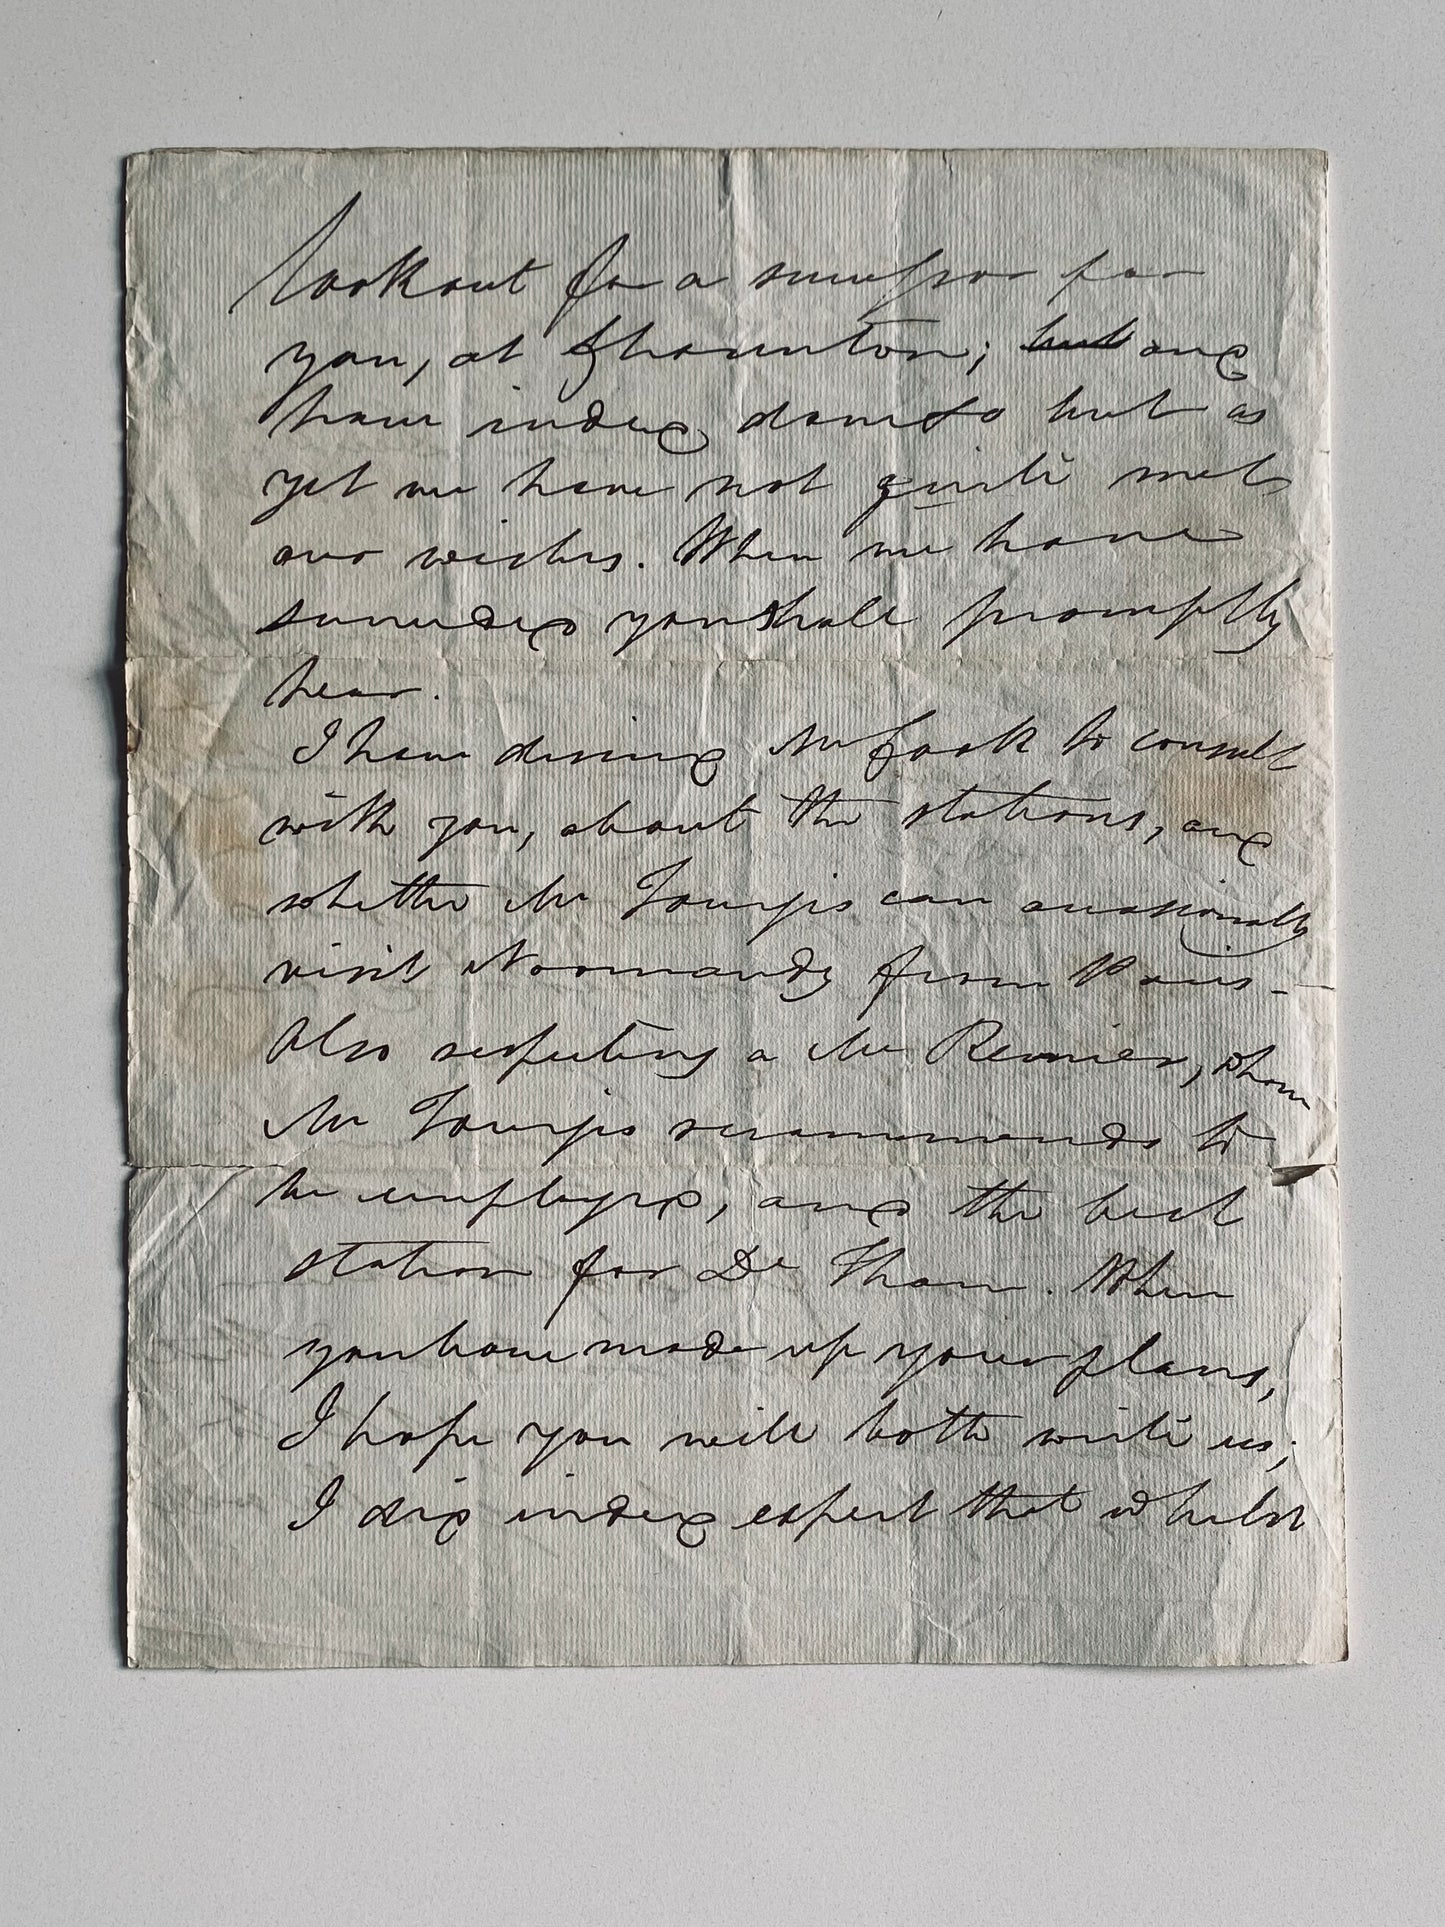 lookout for a successor for
you, at Thornton; but and
have indeed done so but as
yet we have not quite met
our wishes. When we have
succeeded you shall promptly
hear.
I have desired Mr Cook to consult
with you, about the stations, and
whether Mr can occasionally
visit Normandy from Paris -
Also respecting a Mr Renier, whom
Mr recommends to
be employed, and the best
station for De. When
you have made up your plans,
I hope you will both write us;
I did indeed expect that whilst